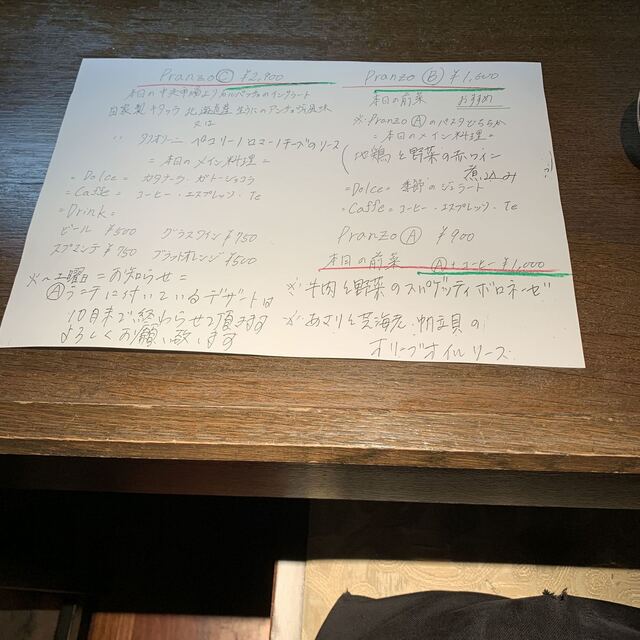 Pranzo Ⓒ ¥2,900
本日の中央市場より カルパッチョのインサラート
自家製 北海道産 生うにの
又は
〃 タリオリーニ ペコリーノロマーノチーズのソース
= 本日のメイン料理 =
= Dolce = カタラーナ・ガトーショコラ
= Caffe = コーヒー・エスプレッソ・Te
= Drink =
ビール ¥500 グラスワイン ¥750
スプマンテ ¥750 ブラッドオレンジ ¥500
土曜日 = お知らせ =
Ⓐランチに付いているデザートは
10月末で終わらせて頂きます
よろしくお願い致します
Pranzo Ⓑ ¥1,600
本日の前菜 おすすめ
※ Pranzo Ⓐ のパスタどちらか
= 本日のメイン料理 =
(地鶏と野菜の赤ワイン
煮込み)
= Dolce = 季節のジェラート
= Caffe = コーヒー・エスプレッソ・Te
Pranzo Ⓐ ¥900
本日の前菜 Ⓐ+コーヒー ¥1,000
※ 牛肉と野菜のスパゲッティボロネーゼ
※ あさりと 帆立貝の
オリーブオイルソース